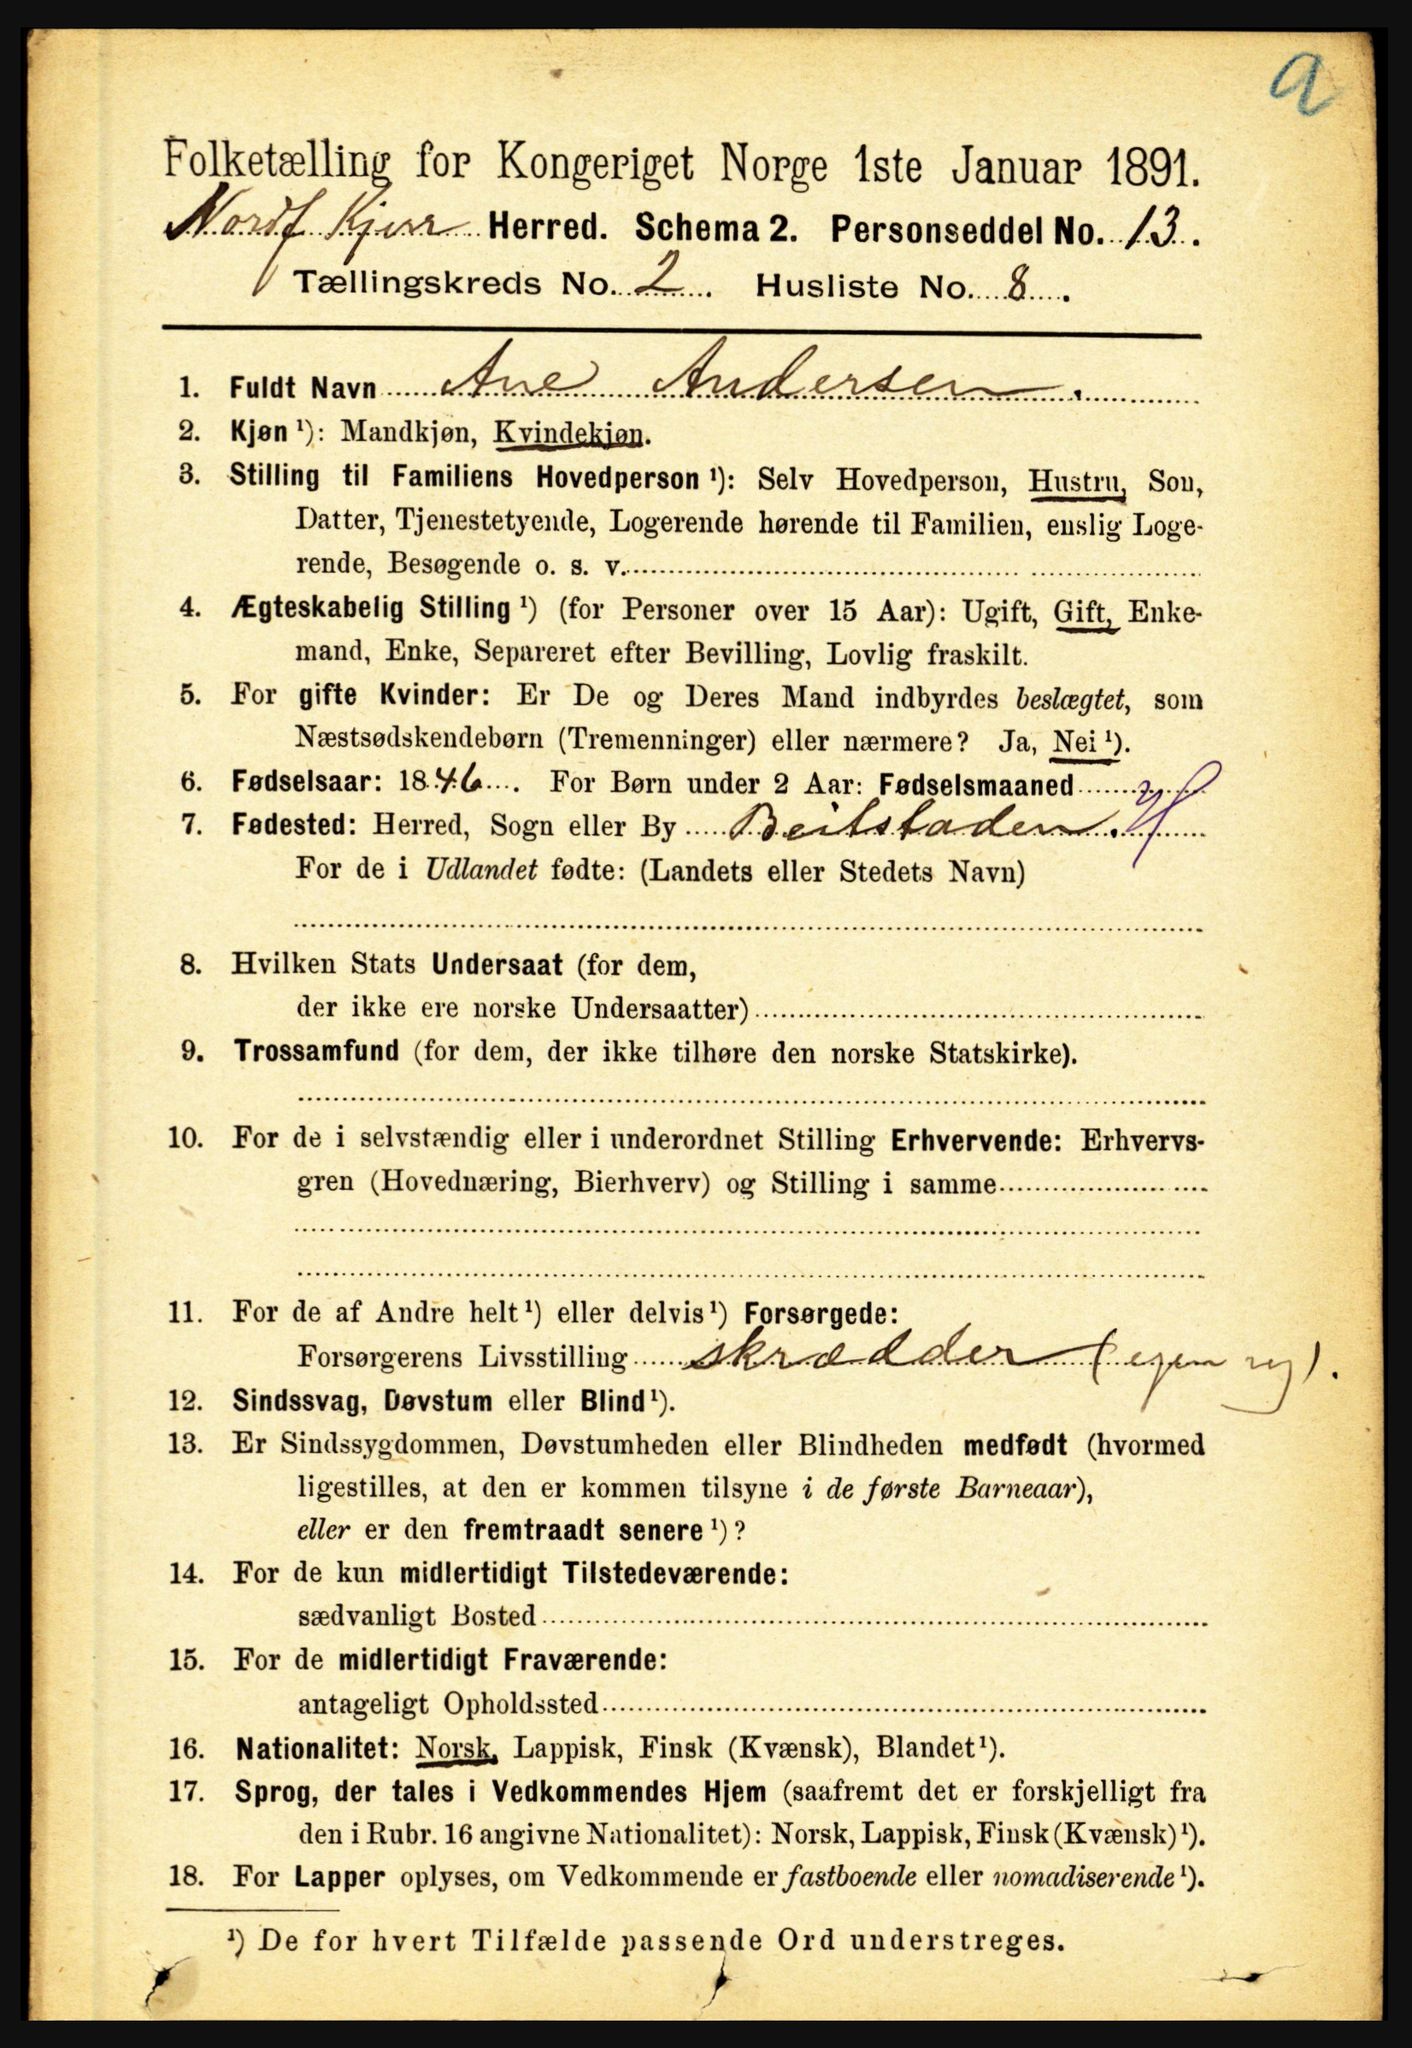 a
Folketælling for Kongeriget Norge 1ste Januar 1891.
Nordf Kjerr Herred. Schema 2. Personseddel No. 13.
Tællingskreds No. 2. Husliste No. 8.
1. Fuldt Navn Ane Andersen.
2. Kjøn ¹): Mandkjøn, Kvindekjøn.
3. Stilling til Familiens Hovedperson ¹): Selv Hovedperson, Hustru, Søn,
Datter, Tjenestetyende, Logerende hørende til Familien, enslig Loge-
rende, Besøgende o. s. v.
4. Ægteskabelig Stilling ¹) (for Personer over 15 Aar): Ugift, Gift, Enke-
mand, Enke, Separeret efter Bevilling, Lovlig fraskilt.
5. For gifte Kvinder: Er De og Deres Mand indbyrdes beslægtet, som
Næstsødskendebørn (Tremenninger) eller nærmere? Ja, Nei ¹).
6. Fødselsaar: 1846. For Børn under 2 Aar: Fødselsmaaned
7. Fødested: Herred, Sogn eller By Beitstaden.
For de i Udlandet fødte: (Landets eller Stedets Navn)
8. Hvilken Stats Undersaat (for dem,
der ikke ere norske Undersaatter)
9. Trossamfund (for dem, der ikke tilhøre den norske Statskirke).
10. For de i selvstændig eller i underordnet Stilling Erhvervende: Erhvervs-
gren (Hovednæring, Bierhverv) og Stilling i samme
11. For de af Andre helt ¹) eller delvis ¹) Forsørgede:
Forsørgerens Livsstilling skrædder (egen rg).
12. Sindssvag, Døvstum eller Blind ¹).
13. Er Sindssygdommen, Døvstumheden eller Blindheden medfødt (hvormed
ligestilles, at den er kommen tilsyne i de første Barneaar),
eller er den fremtraadt senere ¹)?
14. For de kun midlertidigt Tilstedeværende:
sædvanligt Bosted
15. For de midlertidigt Fraværende:
antageligt Opholdssted
16. Nationalitet: Norsk, Lappisk, Finsk (Kvænsk), Blandet ¹).
17. Sprog, der tales i Vedkommendes Hjem (saafremt det er forskjelligt fra
den i Rubr. 16 angivne Nationalitet): Norsk, Lappisk, Finsk (Kvænsk) ¹).
18. For Lapper oplyses, om Vedkommende er fastboende eller nomadiserende ¹).
¹) De for hvert Tilfælde passende Ord understreges.